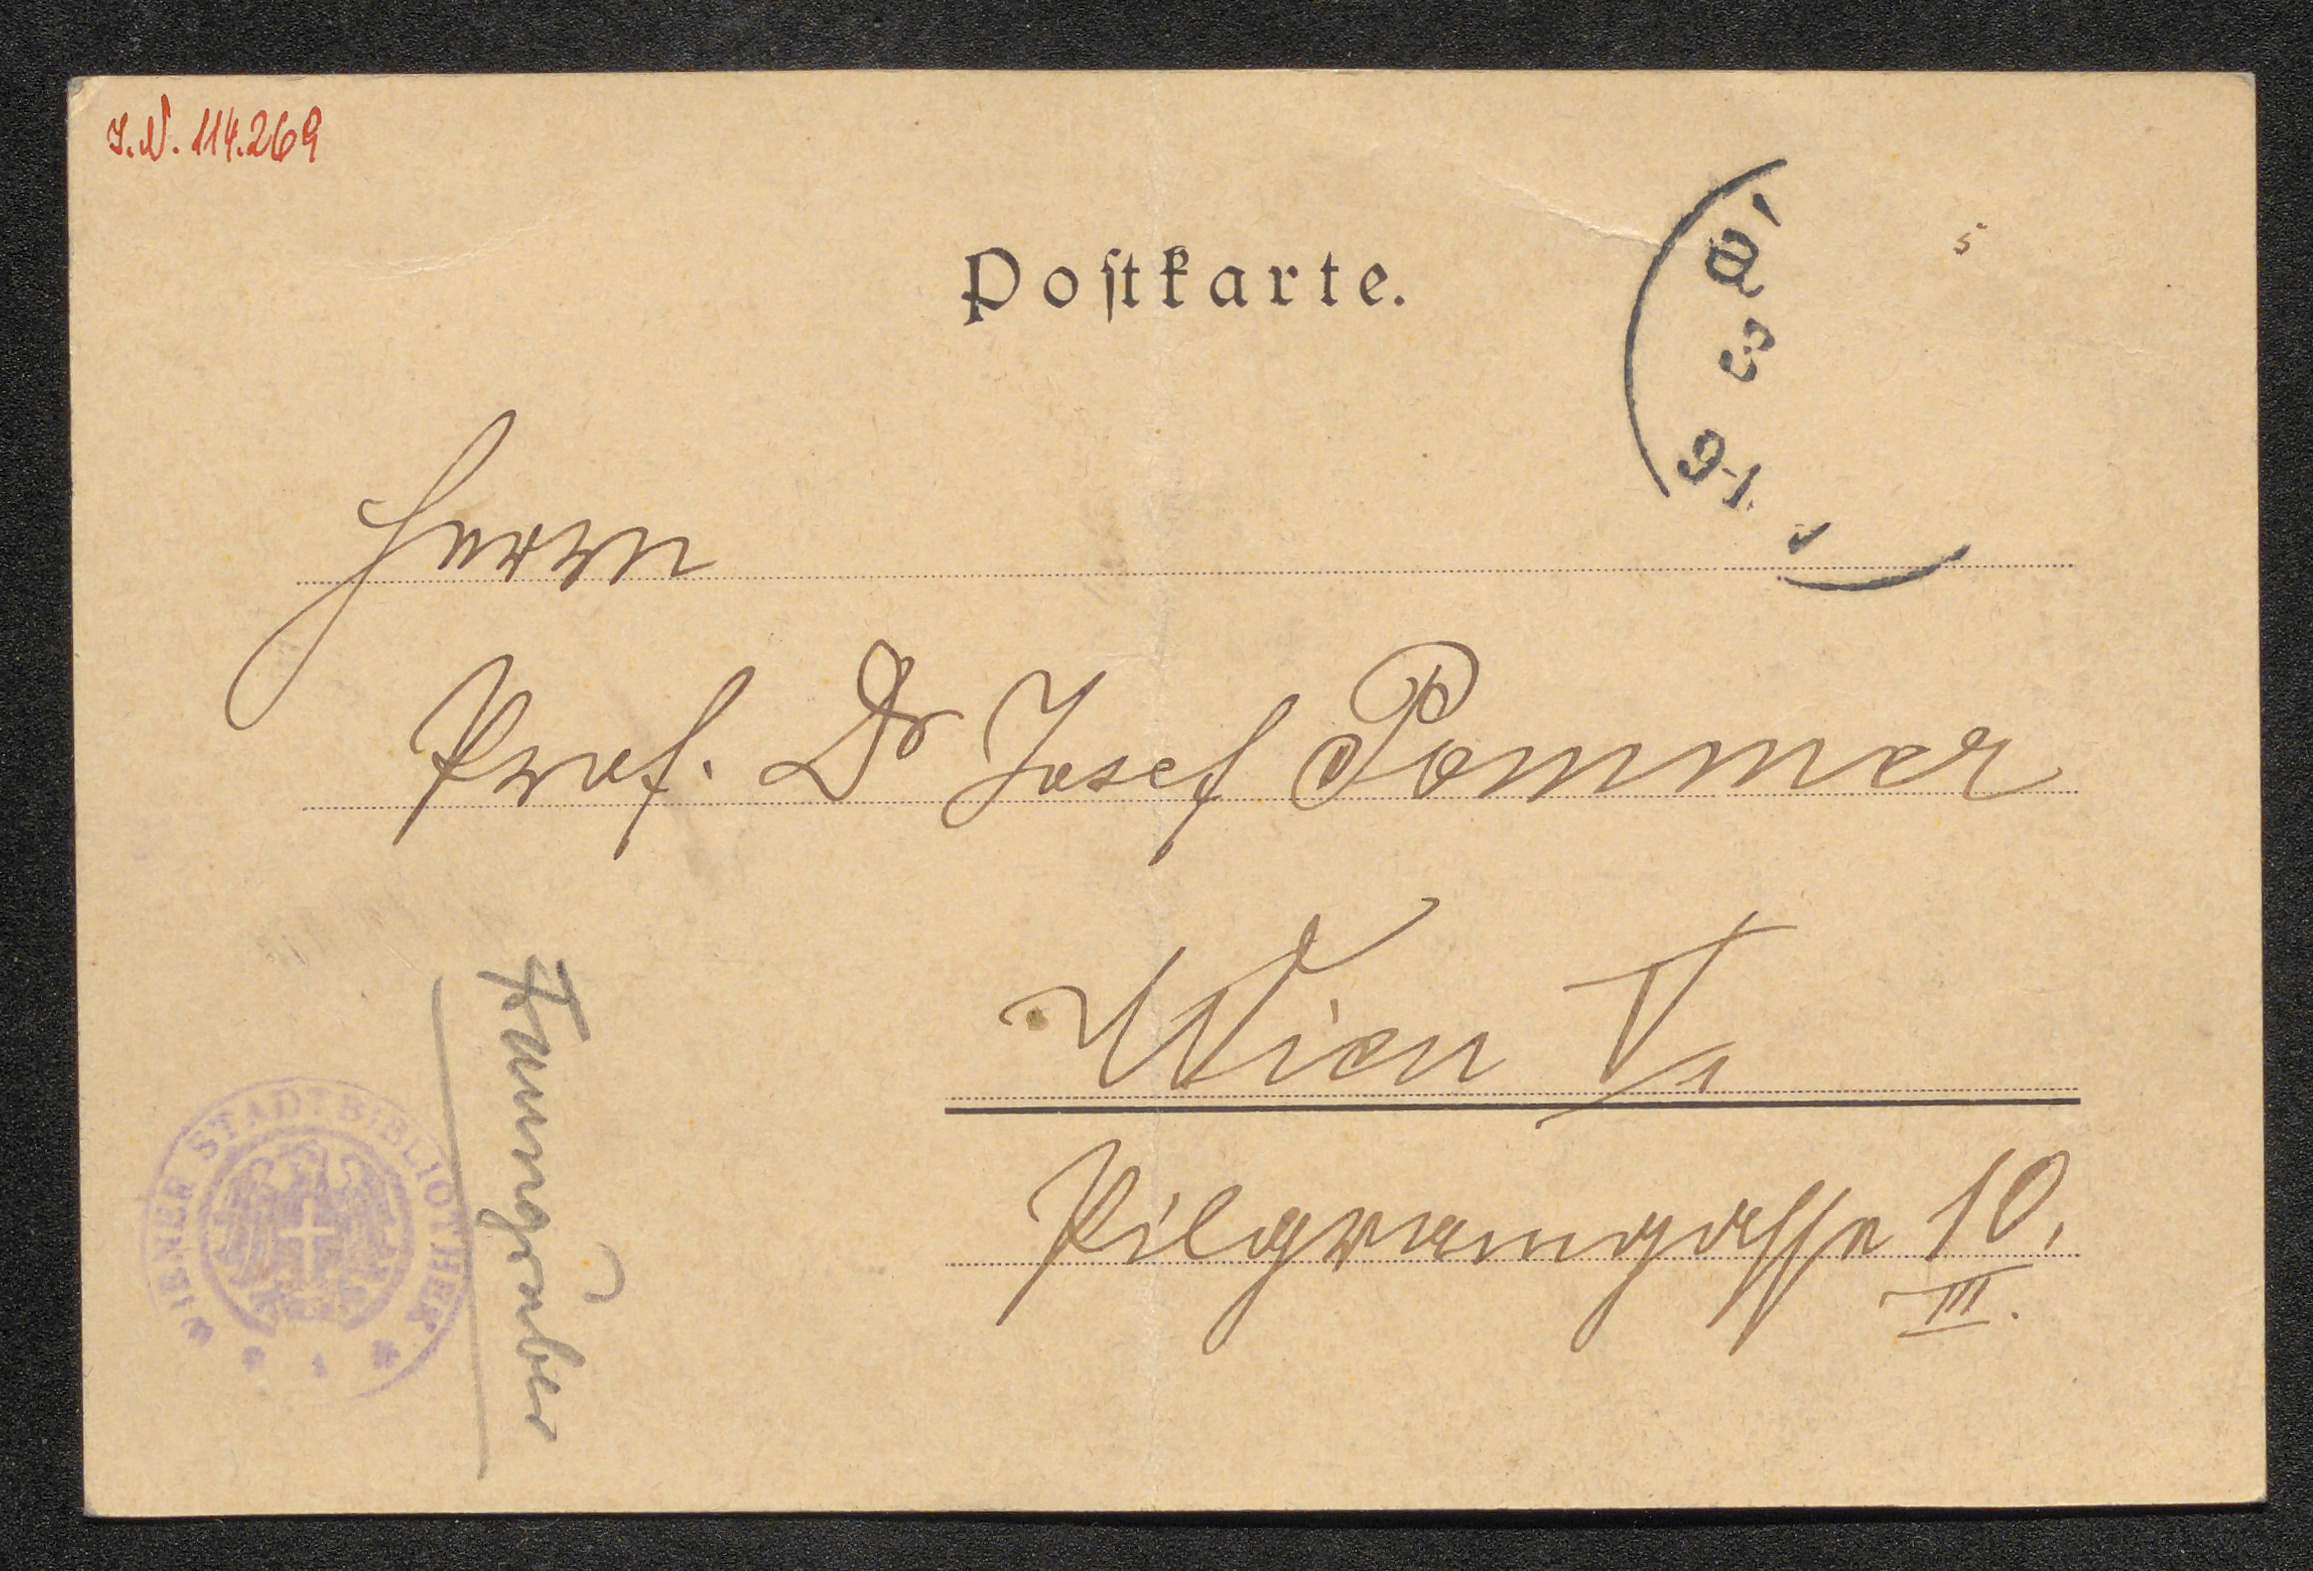 I.N. 114.269
5
Postkarte.
Herrn
Prof. Dr Josef Pommer
Wien V/1
Pilgramgasse 10,
III.
Fraungruber
WIENER STADTBIBLIOTHEK